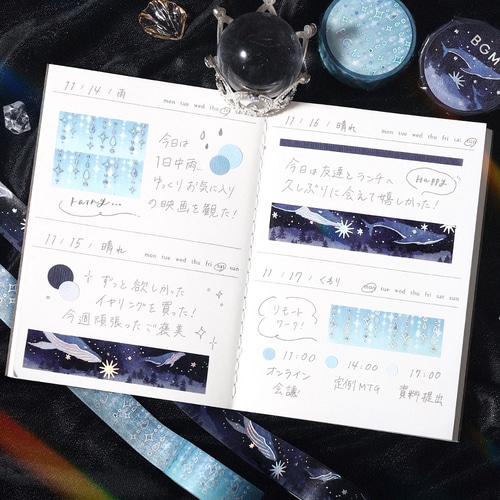 11/14/雨
mon tue wed thu fri sat sun
今日は
1日中雨...
ゆっくりお気に入り
の映画を観た!
Rainy...
11/15/晴れ
mon tue wed thu fri sat sun
ずっと欲しかった
イヤリングを買った!
今週頑張ったご褒美
11/16/晴れ
mon tue wed thu fri sat sun
今日は友達とランチへ
久しぶりに会えて嬉しかった!
Happy
11/17/くもり
mon tue wed thu fri sat sun
リモート
ワーク!
11:00
オンライン
会議
14:00
定例MTG
17:00
資料提出
BGM